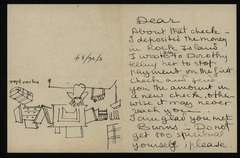 Dear
About that check -
I deposited the money
in Rock Island
I wrote to Dorothy
telling her to stop
payment on the first
check and send
you the amount in
a new check other
wise it may never
reach you —
I am glad you met
Burns — Do not
get too spiritual
yourself please